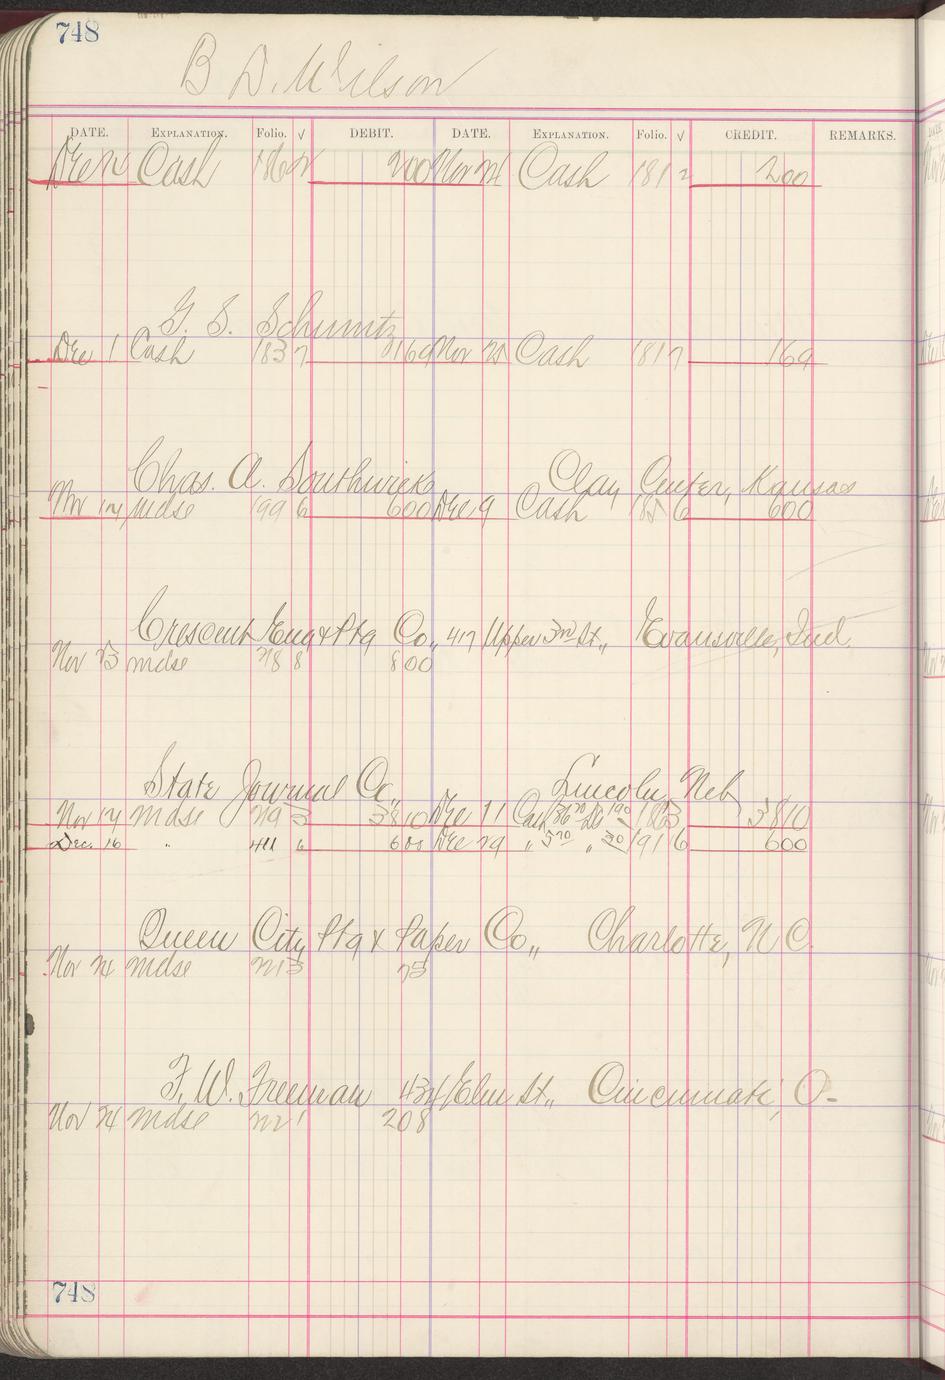 748
B D. Wilson
DATE. EXPLANATION. Folio. √ DEBIT. DATE. EXPLANATION. Folio. √ CREDIT. REMARKS.
Dec Cash 186 200 Nov 24 Cash 181 2 200
G. S. Schumtz
Dec 1 Cash 183 7 169 Nov 25 Cash 181 7 169
Chas. A. Southwick Clay Center, Kansas
Nov 14 mdse 199 6 600 Dec 9 Cash 185 6 600
Crescent Eng & Ptg Co., 417 Upper 3rd St., Evansville, Ind.
Nov 23 mdse 218 8 800
State Journal Co., Lincoln, Neb
Nov 14 mdse 219 3 3810 Dec 11 Cash 183 3810
Dec. 16 " 411 6 600 Dec 29 " 570 " 30 191 6 600
Queen City Ptg & Paper Co., Charlotte, N C.
Nov 24 mdse 221 3 75
F. W. Freeman 434 Elm St., Cincinnati, O-
Nov 24 mdse 208
748